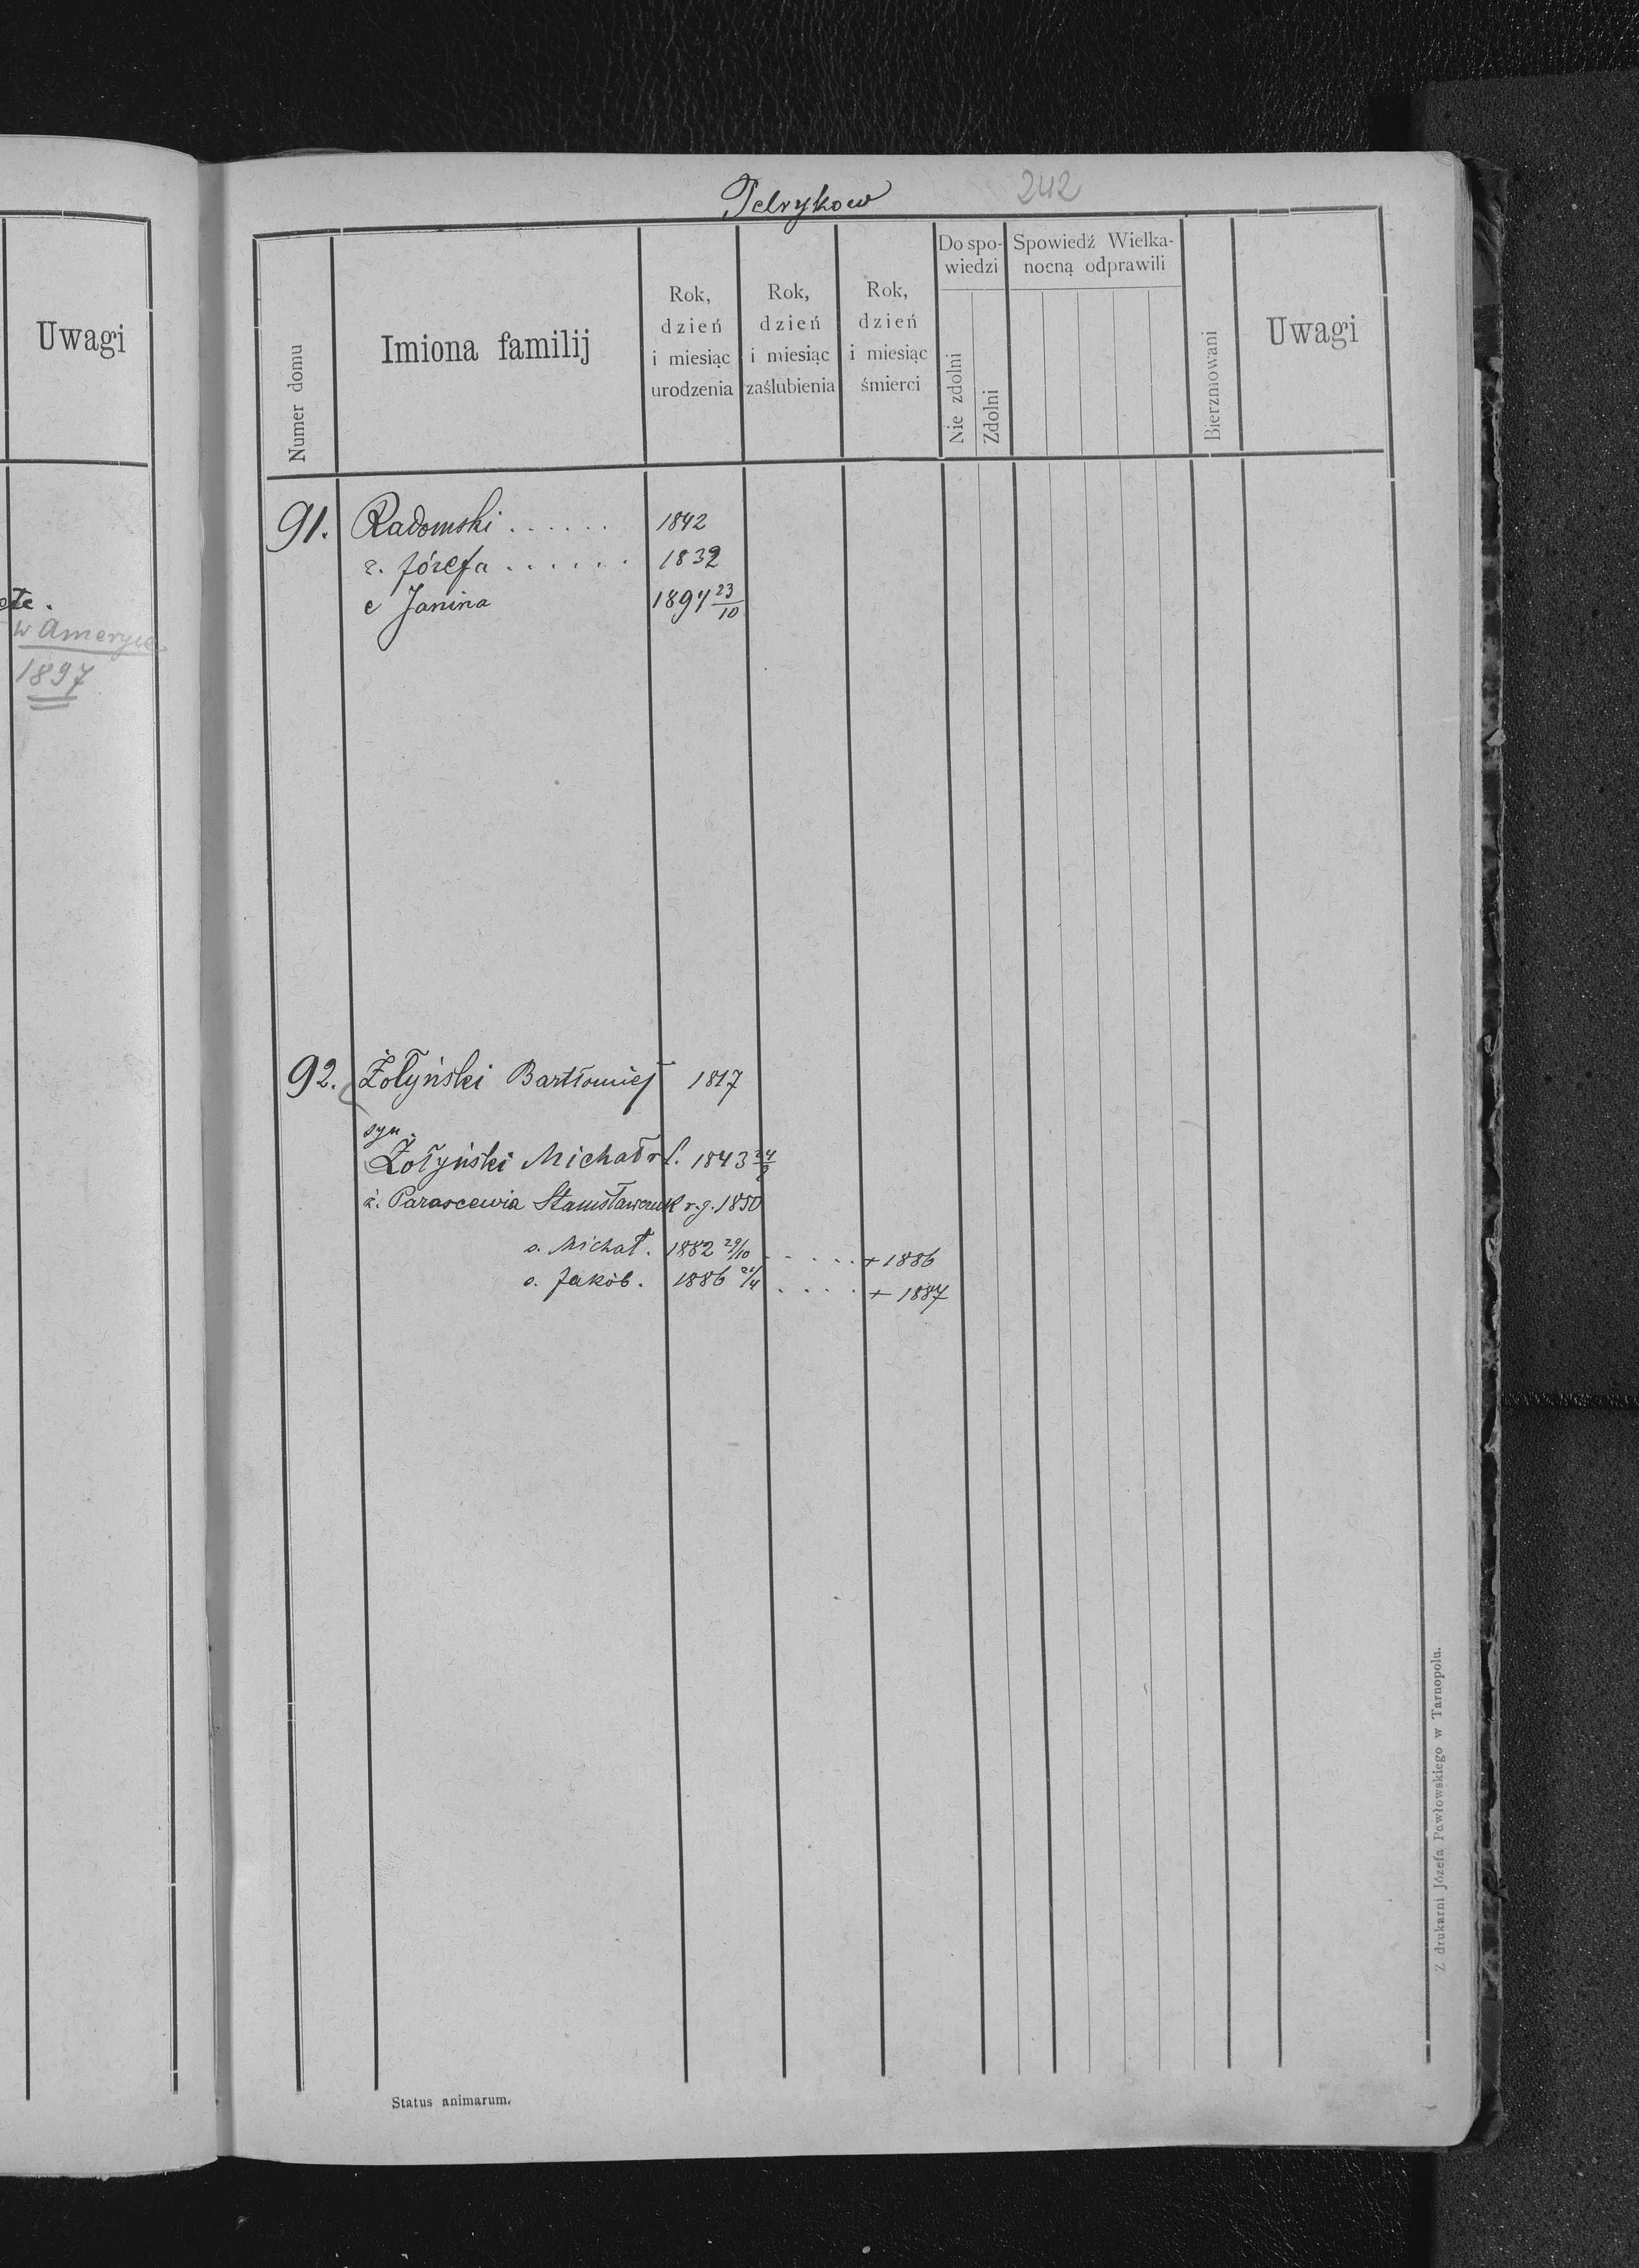 Uwagi
w Ameryce
1897
Petrykow 242
Numer domu
Imiona familij
Rok, dzień i miesiąc urodzenia
Rok, dzień i miesiąc zaślubienia
Rok, dzień i miesiąc śmierci
Do spowiedzi
Nie zdolni
Zdolni
Spowiedź Wielkanocną odprawili
Bierzmowani
Uwagi
91. Radomski . . . . . . 1842
ż. Józefa . . . . . . 1832
c Janina 1894 23/10
92. Żołyński Bartłomiej 1817
syn.
Żołyński Michał r l. 1843 24/9
ż. Parascewia Stanisławczuk r.g. 1850
s. Michał. 1882 29/10 . . . . + 1886
s. Jakób. 1886 21/4 . . . . + 1887
Status animarum.
Z drukarni Józefa Pawłowskiego w Tarnopolu.